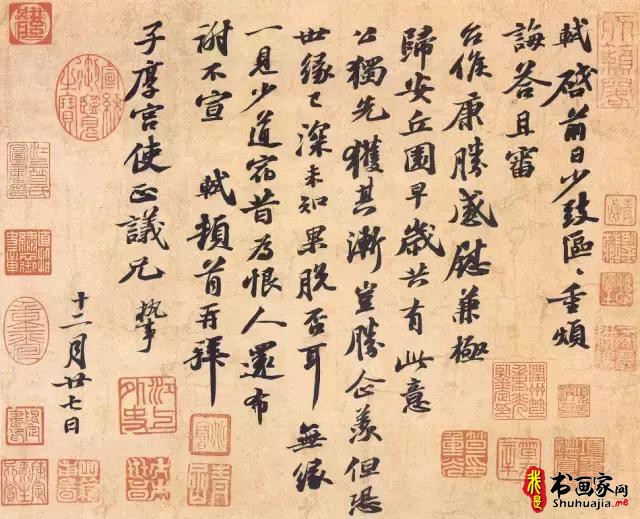 軾啓前日少致區〻重煩
誨答且審
台候康勝感慰兼極
歸安丘園早歲共有此意
公獨先獲其漸豈勝企羨但恐
世緣已深未知果脫否耳 無緣
一見少道宿昔為恨人還布
謝不宣 軾頓首再拜
子厚宮使正議兄 執事
十二月廿七日
宣統御覽之寶
江上外史
我是书画家网
Shuhuajia.me